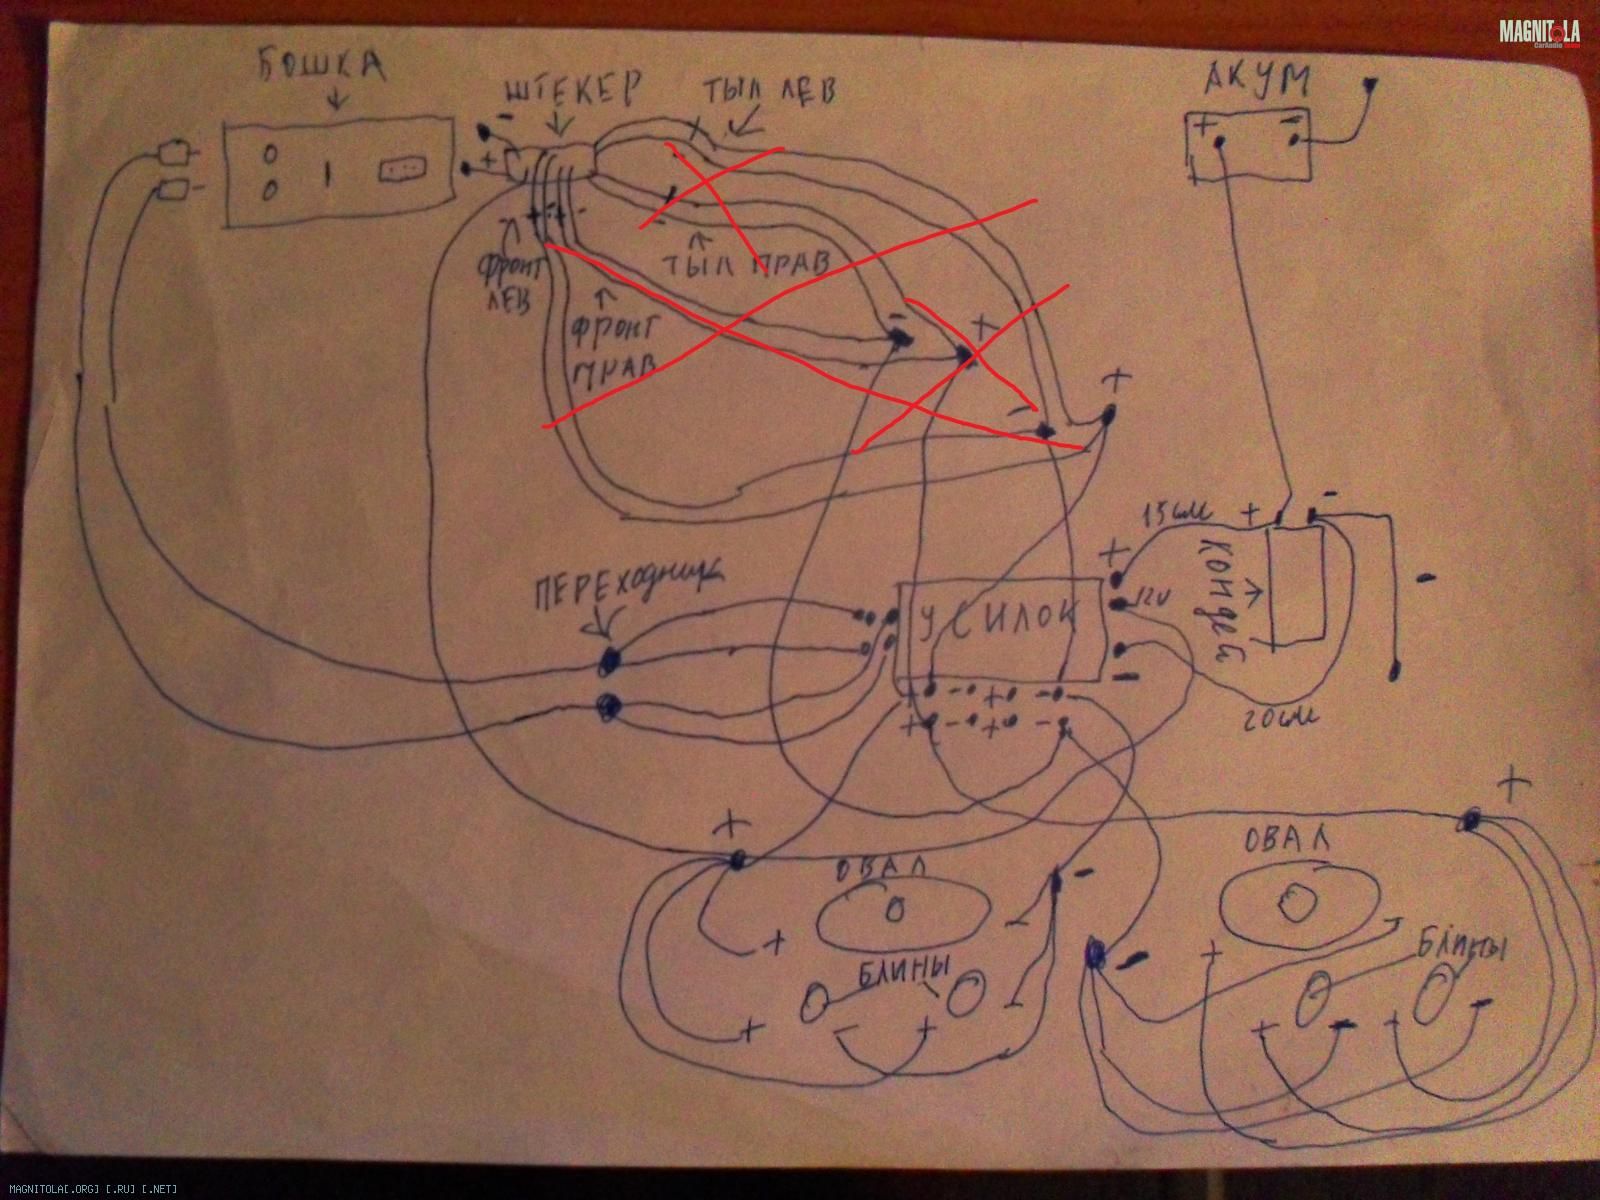 MAGNITOLA
CarAudio
БОШКА
ШТЕКЕР
ТЫЛ ЛЕВ
АКУМ
+ -
-
+
+ - + -
ФРОНТ
ЛЕВ
ТЫЛ ПРАВ
ФРОНТ
ПРАВ
- +
- +
15 см + -
КОНДЕЙ
-
ПЕРЕХОДНИК
+
12V
УСИЛОК
-
+ - + -
+ - + -
20 см
+
ОВАЛ
-
+
ОВАЛ
+
БЛИНЫ
-
-
+ - +
-
+
БЛИНЫ
-
+ - + -
MAGNITOLA[.ORG] [.RU] [.NET]